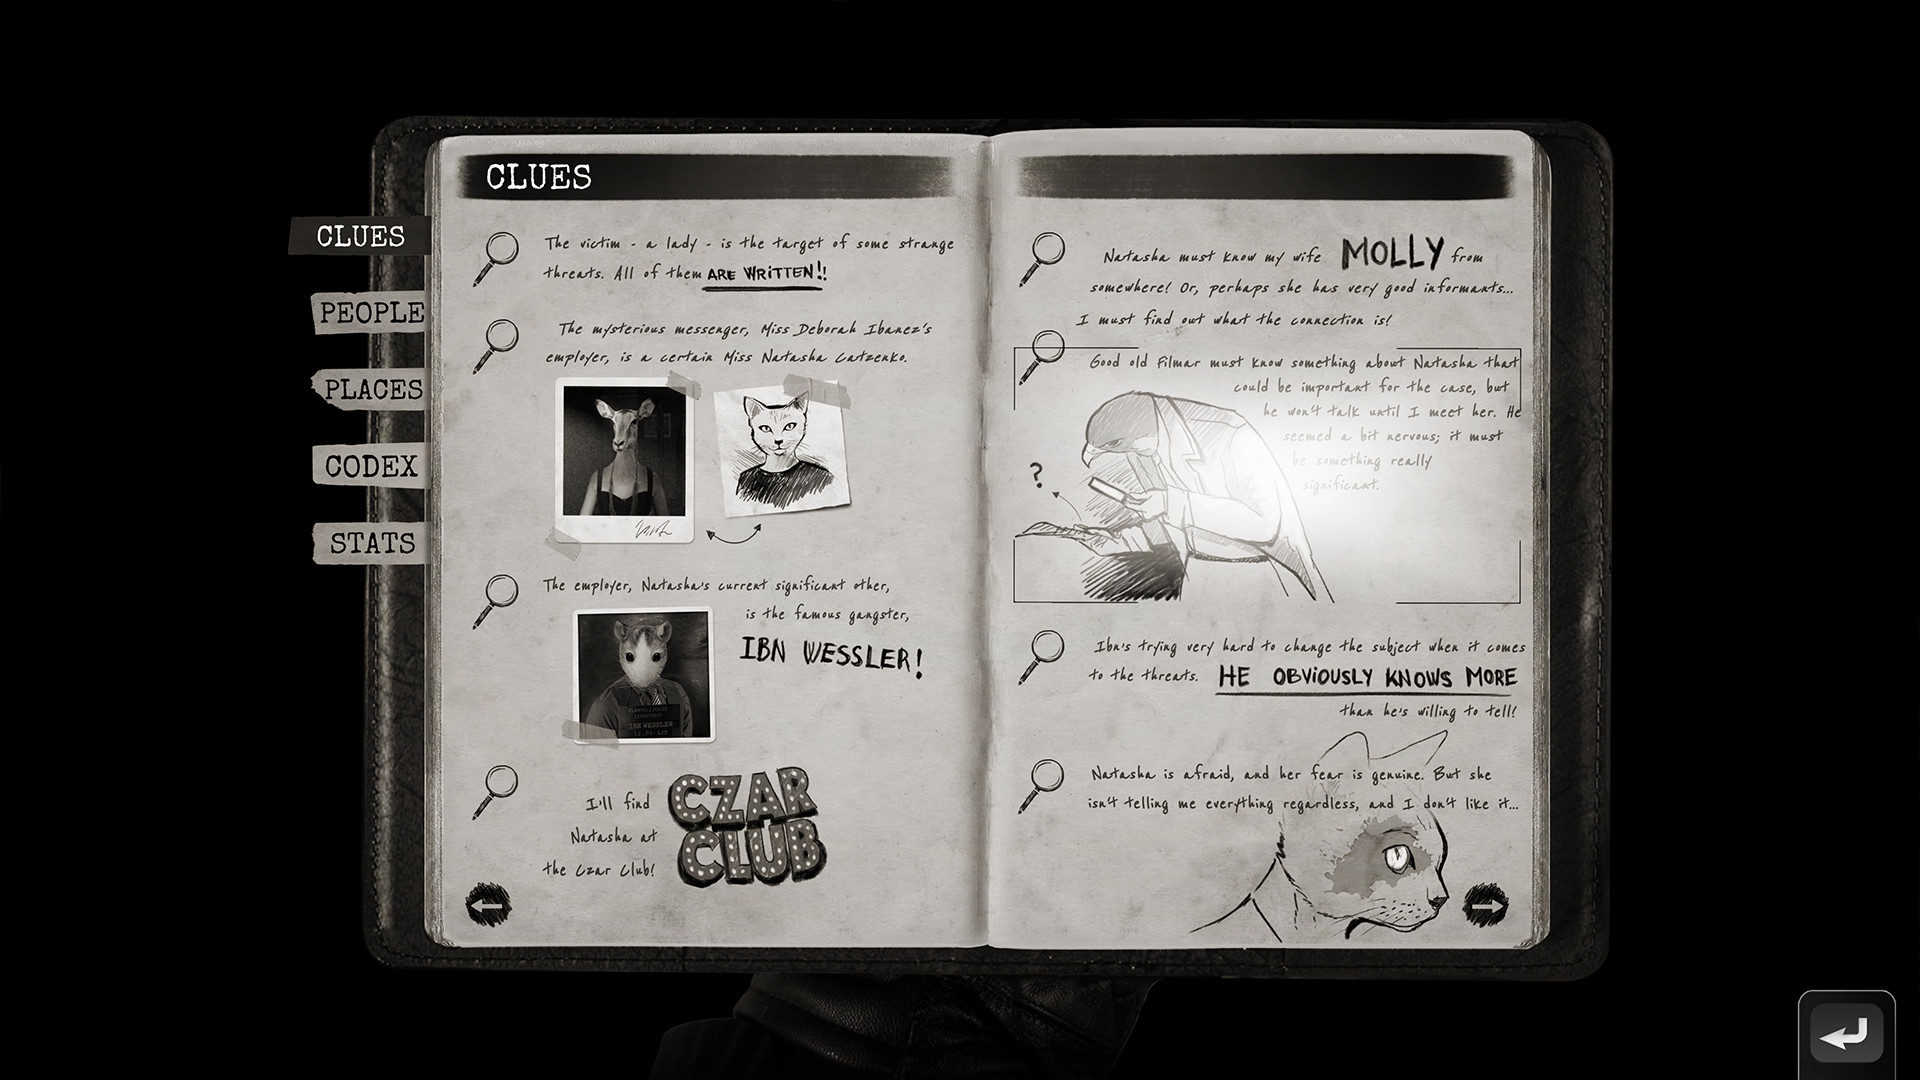 CLUES
CLUES
PEOPLE
PLACES
CODEX
STATS
The victim - a lady - is the target of some strange
threats. All of them ARE WRITTEN!!
The mysterious messenger, Miss Deborah Ibanez's
employer, is a certain Miss Natasha Catzenko.
The employer, Natasha's current significant other,
is the famous gangster,
IBN WESSLER!
IBN WESSLER
I'll find
Natasha at
the Czar Club!
CZAR
CLUB
Natasha must know my wife MOLLY from
somewhere! Or, perhaps she has very good informants...
I must find out what the connection is!
Good old Filmar must know something about Natasha that
could be important for the case, but
he won't talk until I meet her. He
seemed a bit nervous; it must
be something really
significant.
?
Ibn's trying very hard to change the subject when it comes
to the threats. HE OBVIOUSLY KNOWS MORE
than he's willing to tell!
Natasha is afraid, and her fear is genuine. But she
isn't telling me everything regardless, and I don't like it...